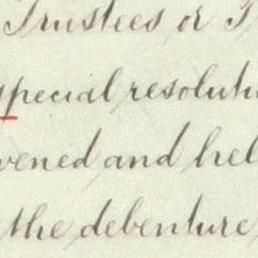 Trustees or T
special resoluti
vened and hel
the debenture